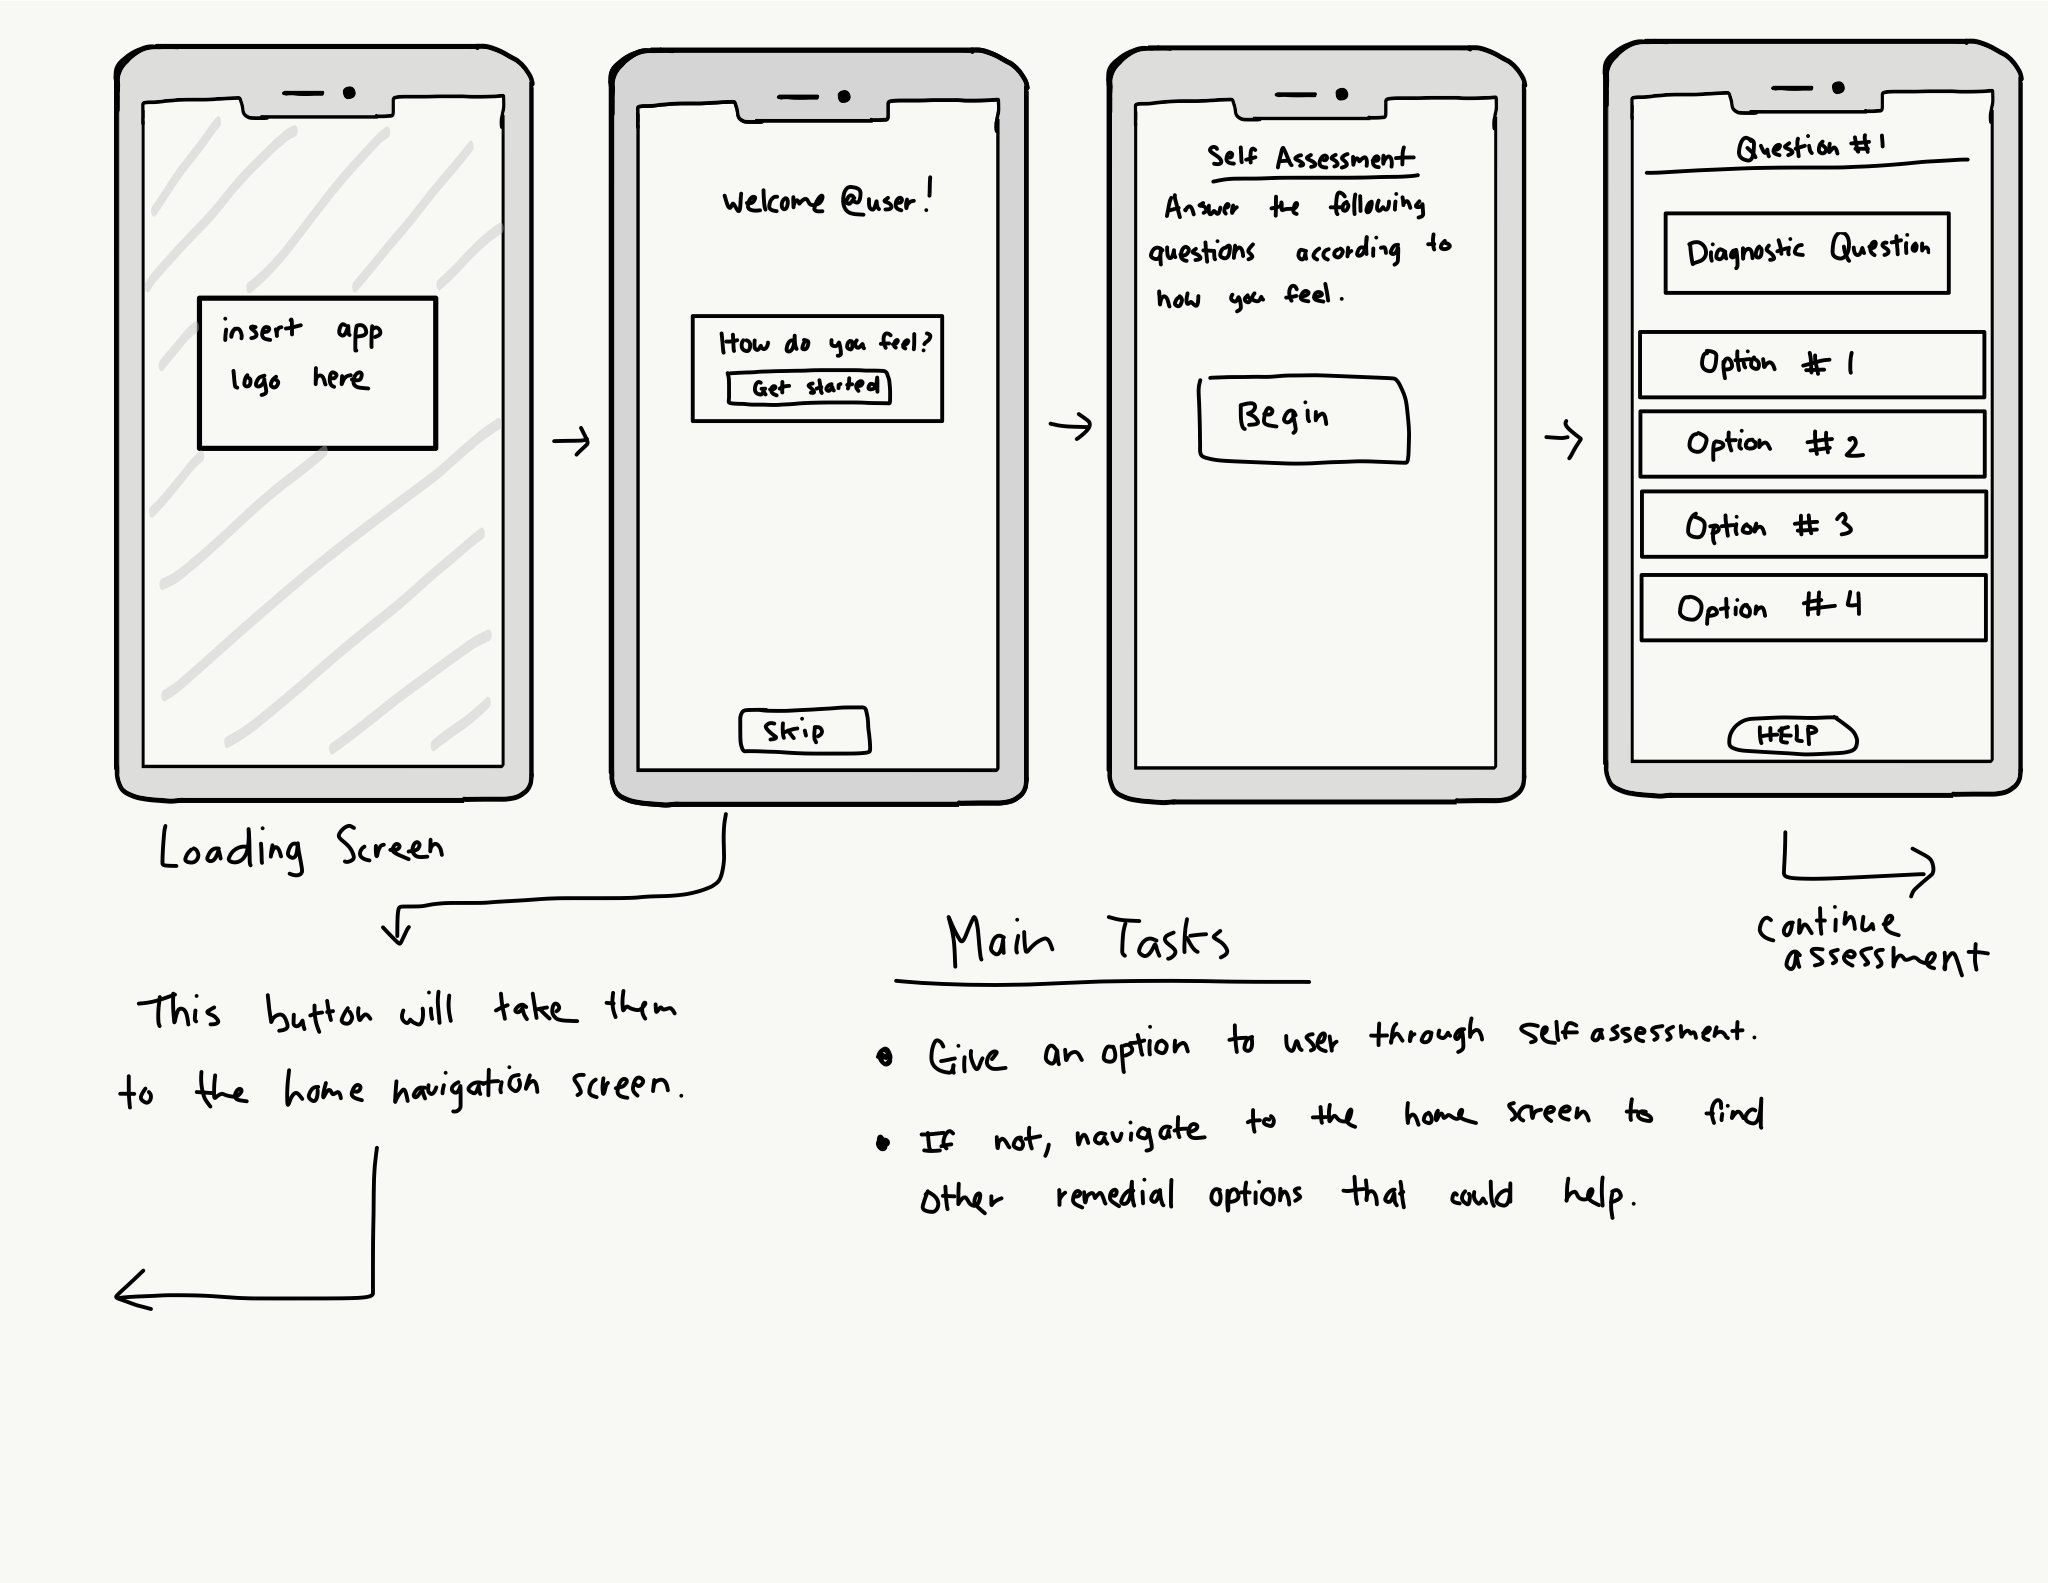 insert app
logo here
Loading Screen
Welcome @user!
How do you feel?
Get started
Skip
Self Assessment
Answer the following
questions according to
how you feel.
Begin
Question #1
Diagnostic Question
Option #1
Option #2
Option #3
Option #4
HELP
continue
assessment
This button will take them
to the home navigation screen.
Main Tasks
• Give an option to user through self assessment.
• If not, navigate to the home screen to find
other remedial options that could help.